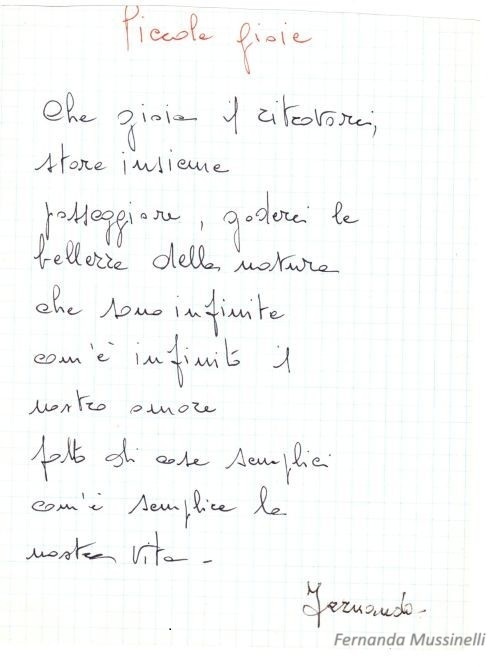 Piccole gioie
Che gioia il ritrovarci,
stare insieme
passeggiare, goderci le
bellezze della natura
che sono infinite
com'è infinito il
nostro amore
fatto di cose semplici
com'è semplice la
nostra vita -
Fernanda -
Fernanda Mussinelli